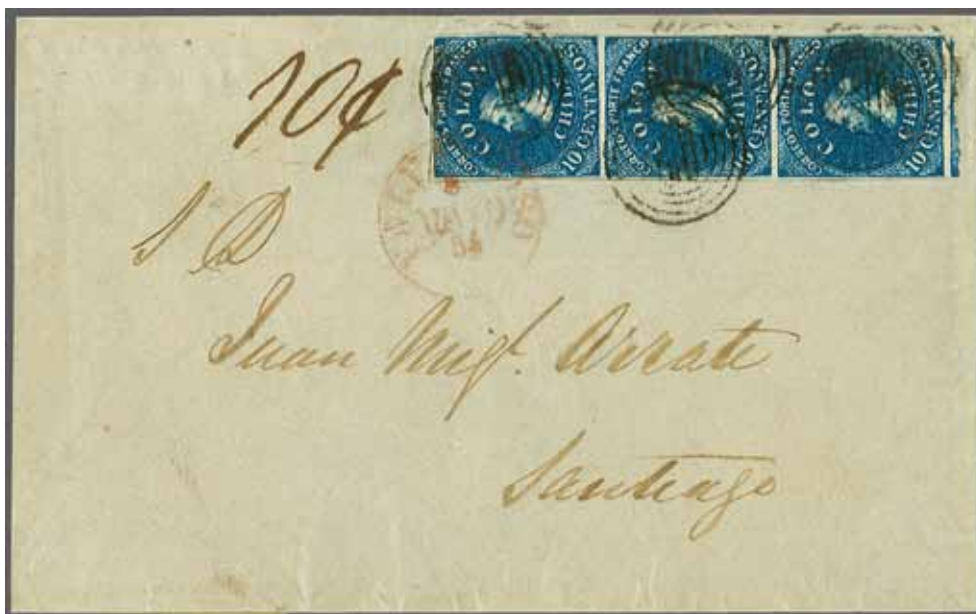 10¢
CORREOS PORTE FRANCO COLON CHILE 10 CENTAVOS
CORREOS PORTE FRANCO COLON CHILE 10 CENTAVOS
CORREOS PORTE FRANCO COLON CHILE 10 CENTAVOS
54
S D
Juan Migl. Arrate
Santiago